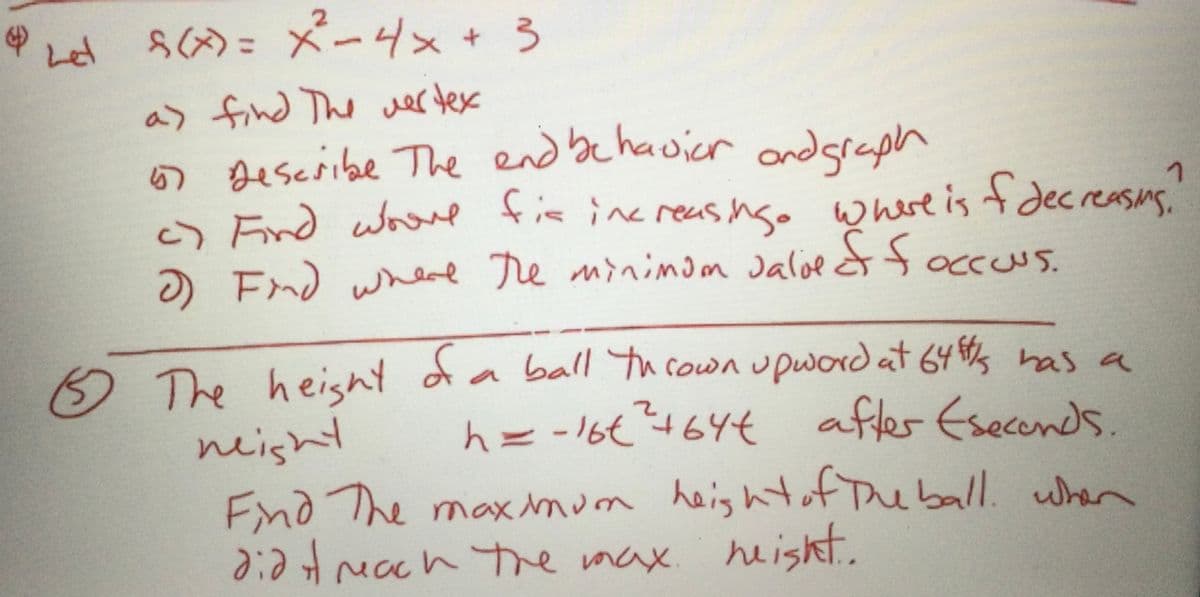 ④ Let f(x) = x² - 4x + 3
a) find The vertex
b) Describe The end behavior and graph
c) Find where f is increasing. where is f decreasing?
d) Find where The minimum value of f occurs.
⑤ The height of a ball thrown upward at 64 ft/s has a
height h = -16t² + 64t after t seconds.
Find The maximum height of The ball. when
did it reach the max. height.